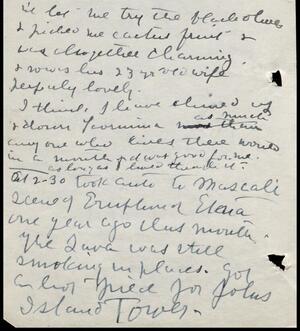 & let me try the black olives
& picked me cactus fruit &
was altogether charming
& so was his 23 yr old wife
perfectly lovely.
I think I have climbed up
& down Taormina as much
than
any one who lives there would
in a month & it was good for me.
as long as I lived thro it.
At 2-30 took auto to Mascali
scene of Eruption of Etna
one year ago this month.
The Lava was still
smoking in places. Got
a hot piece for Johns
Island Tower.